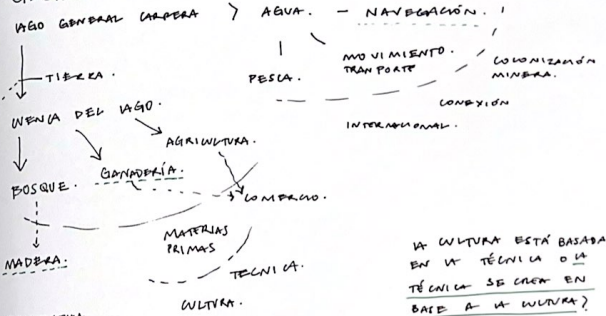 LAGO GENERAL CARRERA > AGUA. - NAVEGACIÓN.
MOVIMIENTO.
TRANPORTE
COLONIZACIÓN
MINERA.
TIERRA.
PESCA.
CONEXIÓN
INTERNACIONAL.
CUENCA DEL LAGO.
AGRICULTURA.
GANADERÍA.
BOSQUE.
COMERCIO.
MATERIAS
PRIMAS
MADERA.
TECNICA.
CULTURA.
LA CULTURA ESTÁ BASADA
EN LA TÉCNICA O LA
TÉCNICA SE CREA EN
BASE A LA CULTURA?